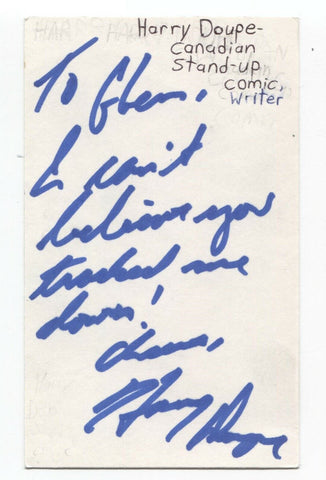 Harry Doupe-
Canadian
Stand-up
comic,
Writer
To Glen,
I can't
believe you
tracked me
down!
Cheers,
Harry Doupe